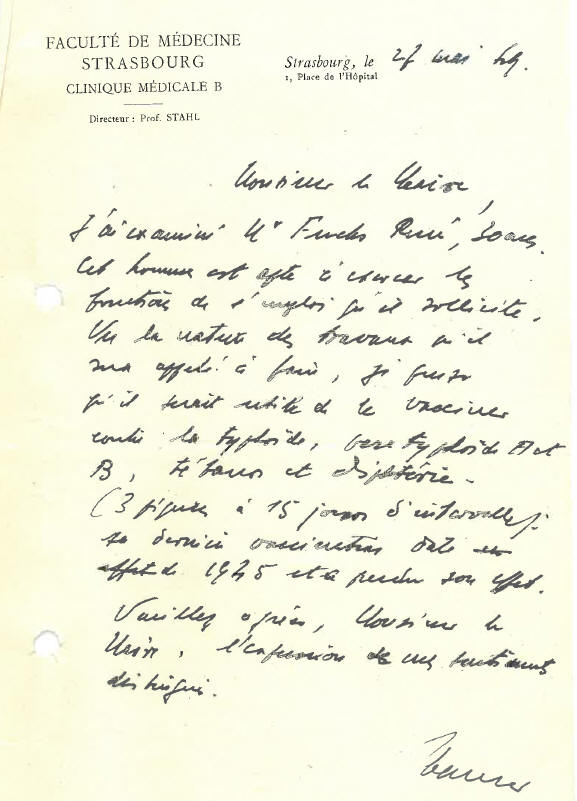 FACULTÉ DE MÉDECINE
STRASBOURG
CLINIQUE MÉDICALE B
Directeur : Prof. STAHL
Strasbourg, le 27 mai 49.
1, Place de l'Hôpital
Monsieur le Maire,
J'ai examiné Mr Fuchs René, 30 ans.
Cet homme est apte à exercer les
fonctions de l'emploi qu'il sollicite.
Vu la nature des travaux qu'il
sera appelé à faire, je pense
qu'il serait utile de le vacciner
contre la typhoïde, paratyphoïde A et
B, tétanos et diphtérie.
(3 piqûres à 15 jours d'intervalle) :
sa dernière vaccination date en
effet de 1945 et a perdu son effet.
Veuillez agréer, Monsieur le
Maire, l'expression de mes sentiments
distingués.